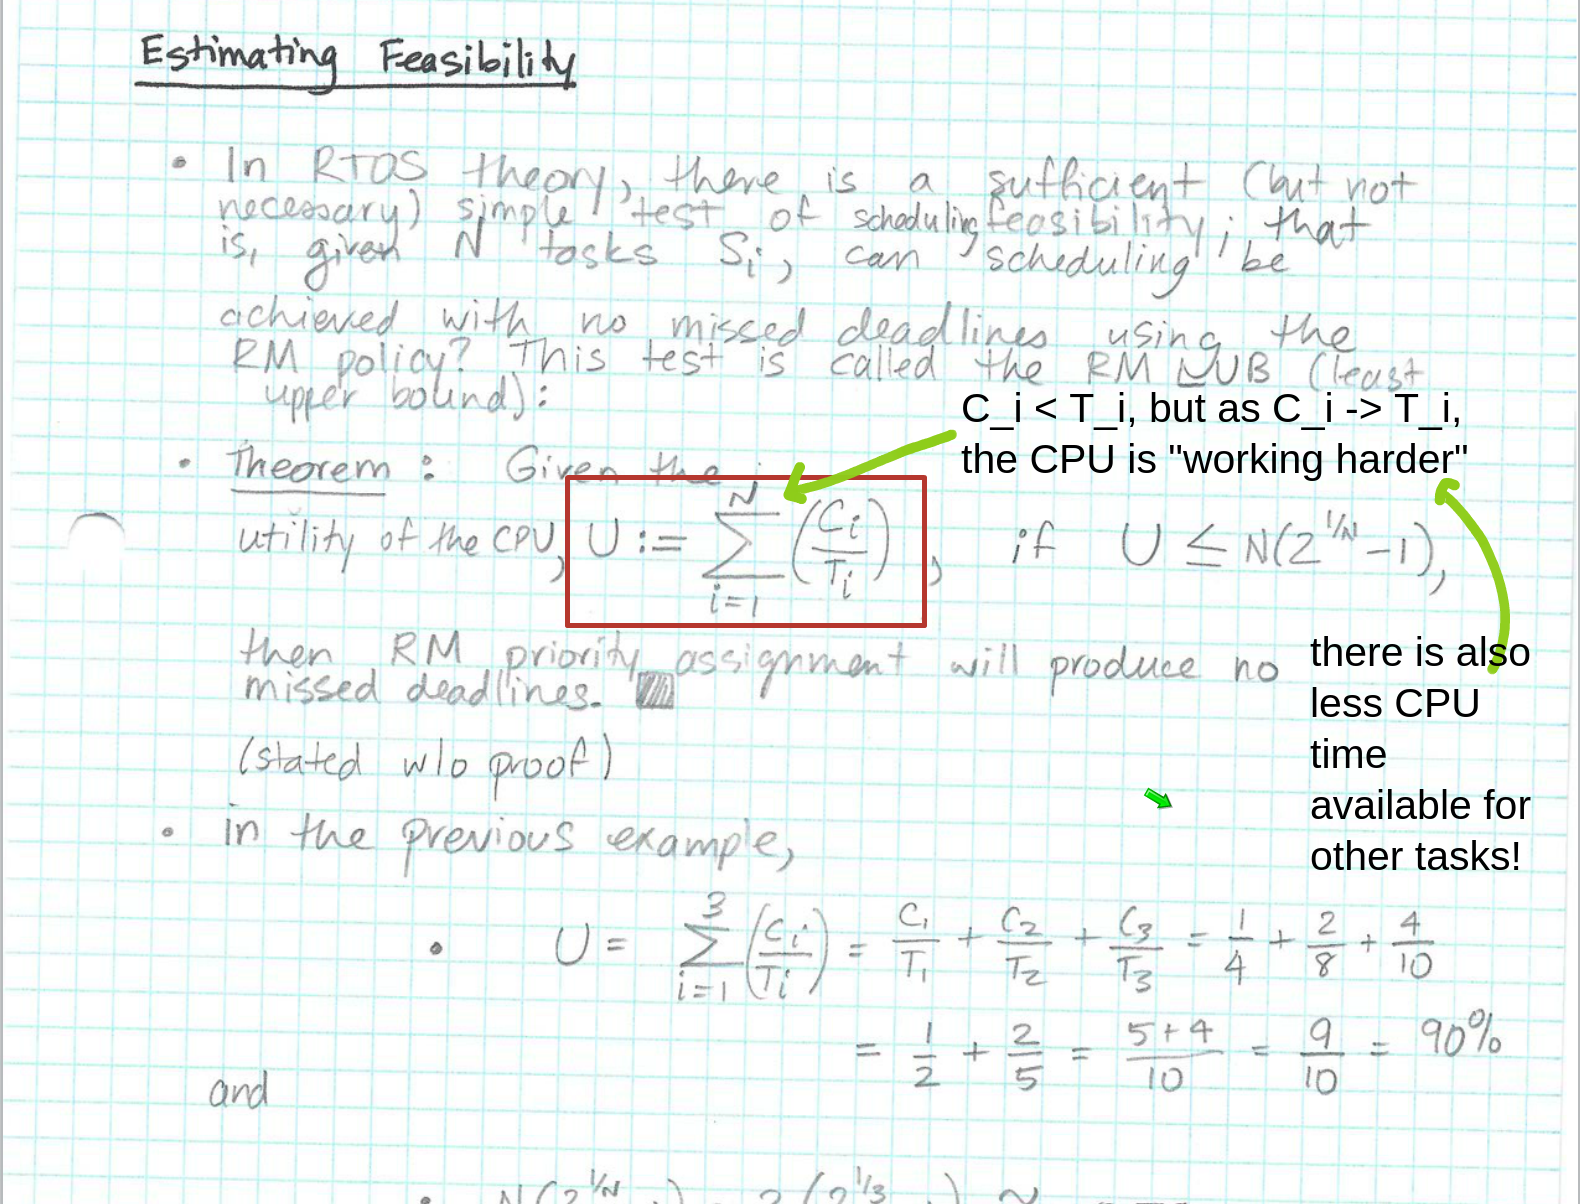 Estimating Feasibility
• In RTOS theory, there is a sufficient (but not
necessary) simple test of scheduling feasibility; that
is, given N tasks Si, can scheduling be
achieved with no missed deadlines using the
RM policy? This test is called the RM LUB (least
upper bound):
C_i < T_i, but as C_i -> T_i,
the CPU is "working harder"
• Theorem: Given the
utility of the CPU, U := N∑i=1 (Ci/Ti), if U ≤ N(2^1/N - 1),
then RM priority assignment will produce no
missed deadlines.
there is also
less CPU
time
available for
other tasks!
(stated w/o proof)
• in the previous example,
• U = 3∑i=1 (Ci/Ti) = C1/T1 + C2/T2 + C3/T3 = 1/4 + 2/8 + 4/10
= 1/2 + 2/5 = 5+4/10 = 9/10 = 90%
and